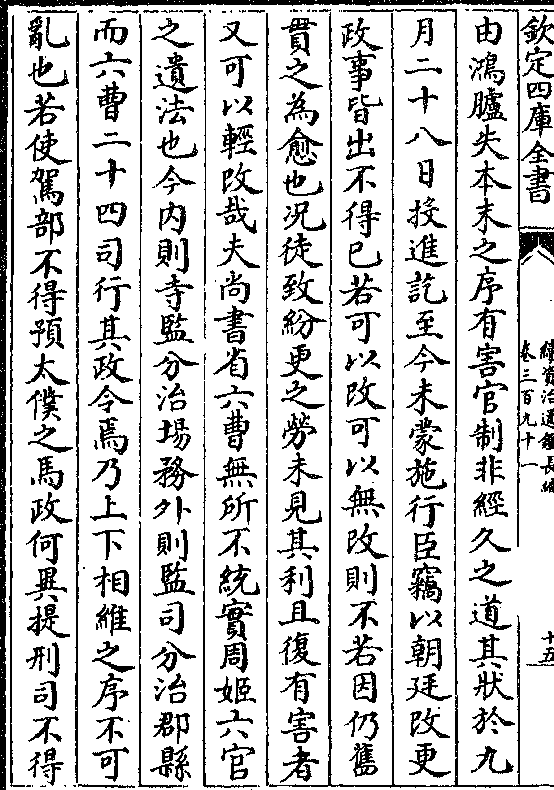 欽定四庫全書
續資治通鑑長編
卷三百九十一
十五
由鴻臚失本末之序有害官制非經久之道其狀於九
月二十八日投進訖至今未蒙施行臣竊以朝廷改更
政事皆出不得已若可以改可以無改則不若因仍舊
貫之為愈也况徒致紛更之勞未見其利且復有害者
又可以輕改哉夫尚書省六曹無所不統實周姬六官
之遺法也今内則寺監分治場務外則監司分治郡縣
而六曹二十四司行其政令焉乃上下相維之序不可
亂也若使駕部不得預太僕之馬政何異提刑司不得